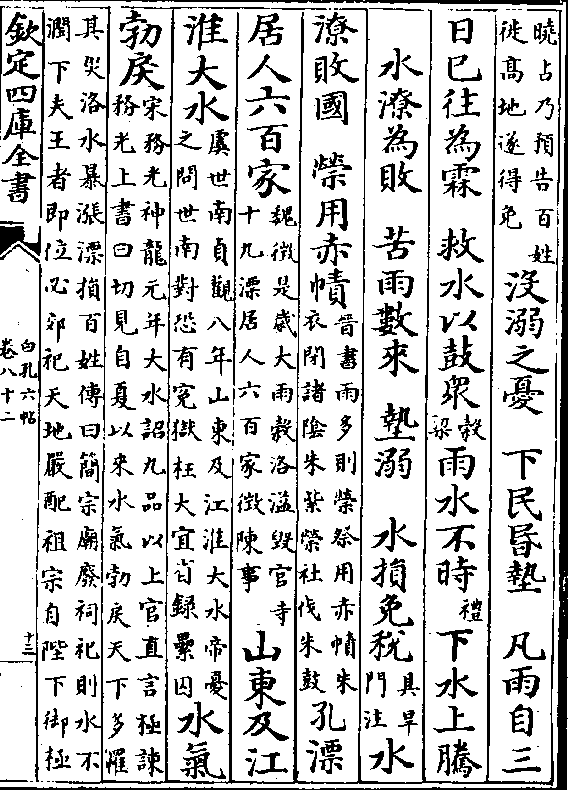 曉占乃預告百姓
徙髙地遂得免
没溺之憂　下民昬墊　凡雨自三
日已往為霖　救水以鼓衆
榖
梁
雨水不時
禮
下水上騰
水潦為敗　苦雨數來　墊溺　水損免稅
具旱
門注
水
潦敗國　禜用赤幘
晉書雨多則禜祭用赤幘朱
衣閉諸陰朱紫禜社伐朱鼓
孔漂
居人六百家
魏徵是歳大雨榖洛溢毀官寺
十九漂居人六百家徵陳事
山東及江
淮大水
虞世南貞觀八年山東及江淮大水帝憂
之問世南對恐有寃獄枉大宜省録纍囚
水氣
勃戾
宋務光神龍元年大水詔九品以上官直言極諫
務光上書曰切見自夏以來水氣勃戾天下多罹
其災洛水暴漲漂損百姓傳曰簡宗廟廢祠祀則水不
潤下夫王者即位必郊祀天地嚴配祖宗自陛下御極
欽定四庫全書
白孔六帖
卷八十二
十三